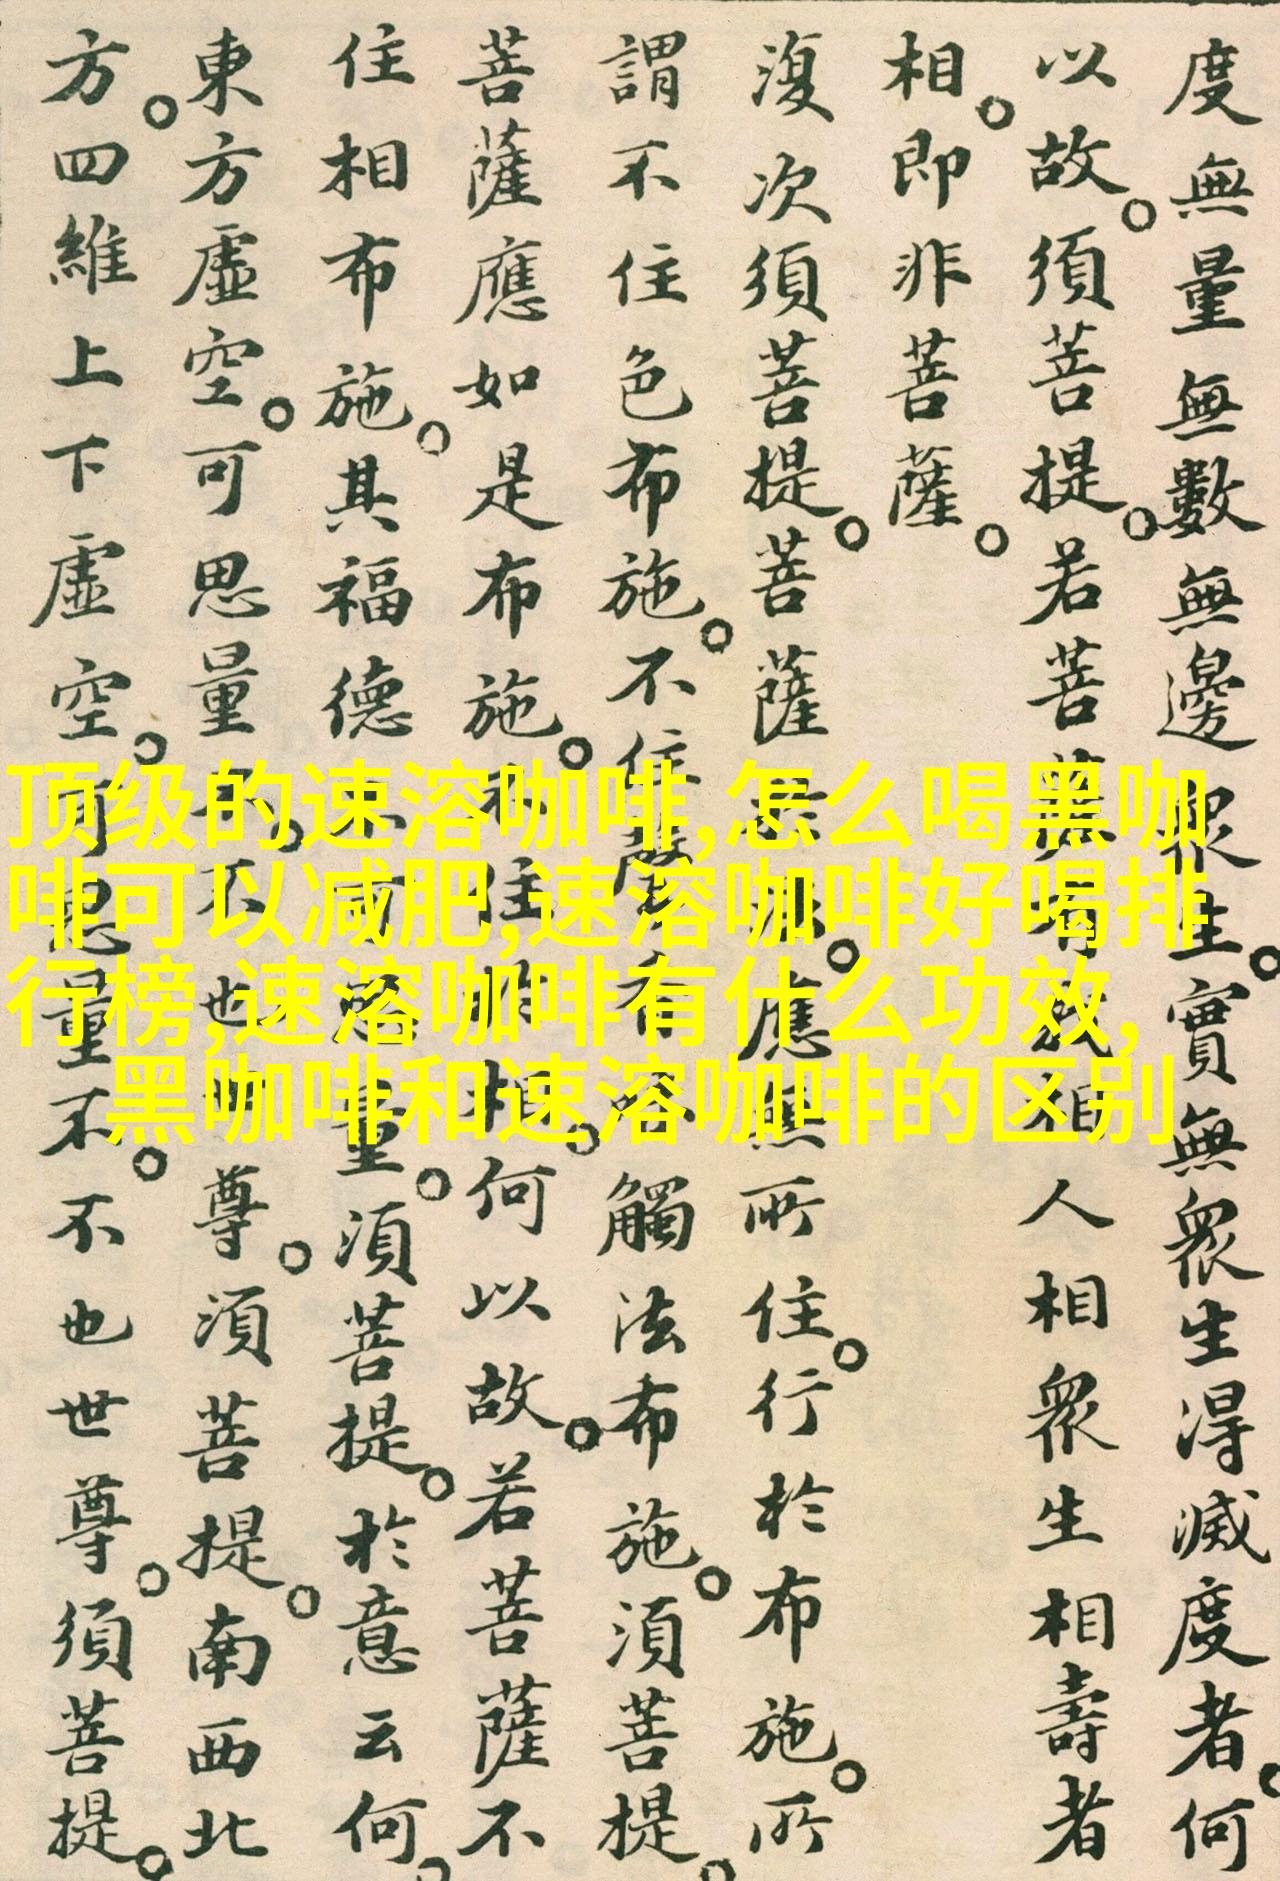 度無量無數無邊眾生。實無眾生得滅度者。何
以故。須菩提。若菩薩有我相人相眾生相壽者
相。即非菩薩。
復次須菩提。菩薩於法。應無所住。行於布施。所
謂不住色布施。不住聲香味觸法布施。須菩提。
菩薩應如是布施。不住於相。何以故。若菩薩不
住相布施。其福德不可思量。須菩提。於意云何。
東方虛空。可思量不。不也世尊。須菩提。南西北
方。四維上下虛空。可思量不。不也世尊。須菩提。
顶级的速溶咖啡,怎么喝黑咖
啡可以减肥,速溶咖啡好喝排
行榜,速溶咖啡有什么功效,
黑咖啡和速溶咖啡的区别